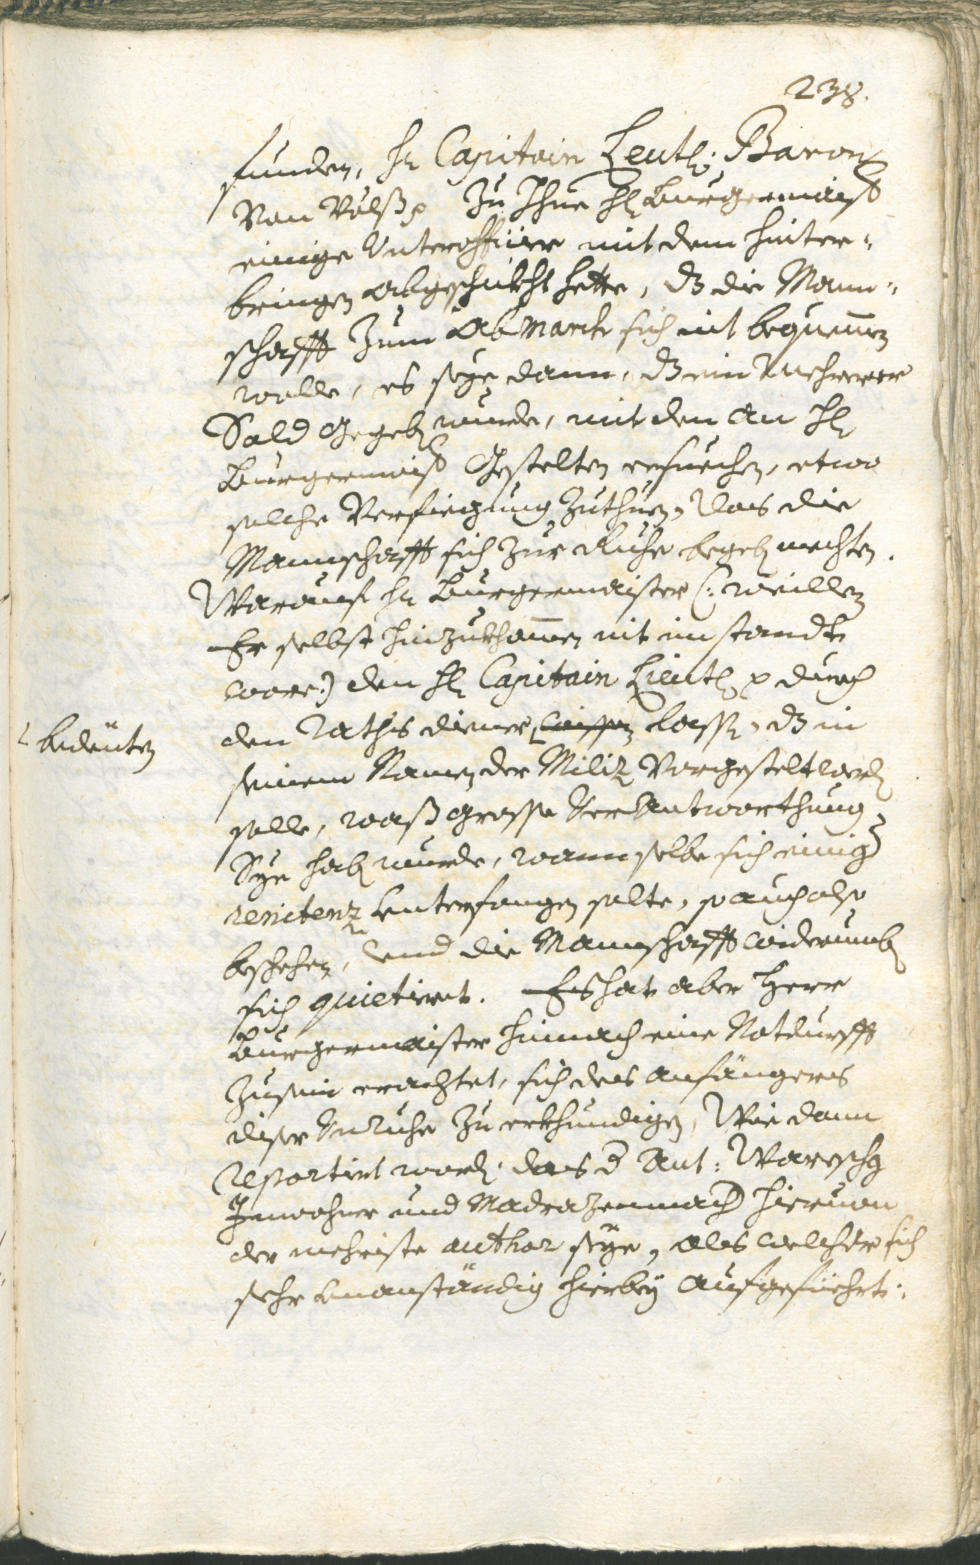 238.
funden, H: Capitain Leuth: Baron
Von Völß p Zu Ihne H: Burgermaist
einige Unteroffiier mit dem hinter-
bringen abgeschikht hette, dz die Mann-
schafft Zum Abmarch sich nit bequemen
wolle, es seye dann, dz ein mehrerer
Sold gegeben wurde, mit dem an H:
Burgermaist gestelten ersuechen, etwo
solche Verfiegung zuthuen, das die
Mannschafft sich zur Ruhe begeb mechten.
Warauf H: Burgermaister (: weillen
Er selbst hinzukhomen nit im standt
ware:) den H: Capitain Lieuth p durch
den Raths diener lassen, dz in
bedeuten
seinem Namen der Miliz vorgestelt werd
solle, waß grosse Verantworthung
Sye hab wurde, wann selbe sich einig
renitenz unterfangen solte, so auch also
beschehen, und die Mannschafft widerumb
sich quietiret. Es hat aber Herr
Burgermaister hinnach eine Notdurfft
zusein erachtet, sich des anfängers
diser Unruhe zu erkhundigen, Wie dann
reportirt word, das d Ant: Wareschg
Inwohner und Madrazenmach hieruon
der mehriste author seye, als welcher sich
sehr unanständig hierbey aufgefiehrt: